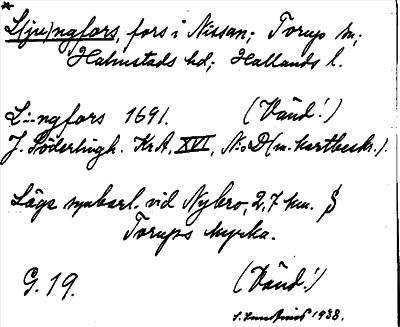 *
L(ju)ngfors, fors i Nissan; Torup sn;
Halmstads hd; Hallands l.
L--ngfors 1691. (Vänd!)
J. Söderlingh. KrA, XVI, N:o D (m. kartbeskr.).
Låge synbarl. vid Nybro, 2,7 km. §
Torups kyrka.
G. 19. (Vänd!)
1938.